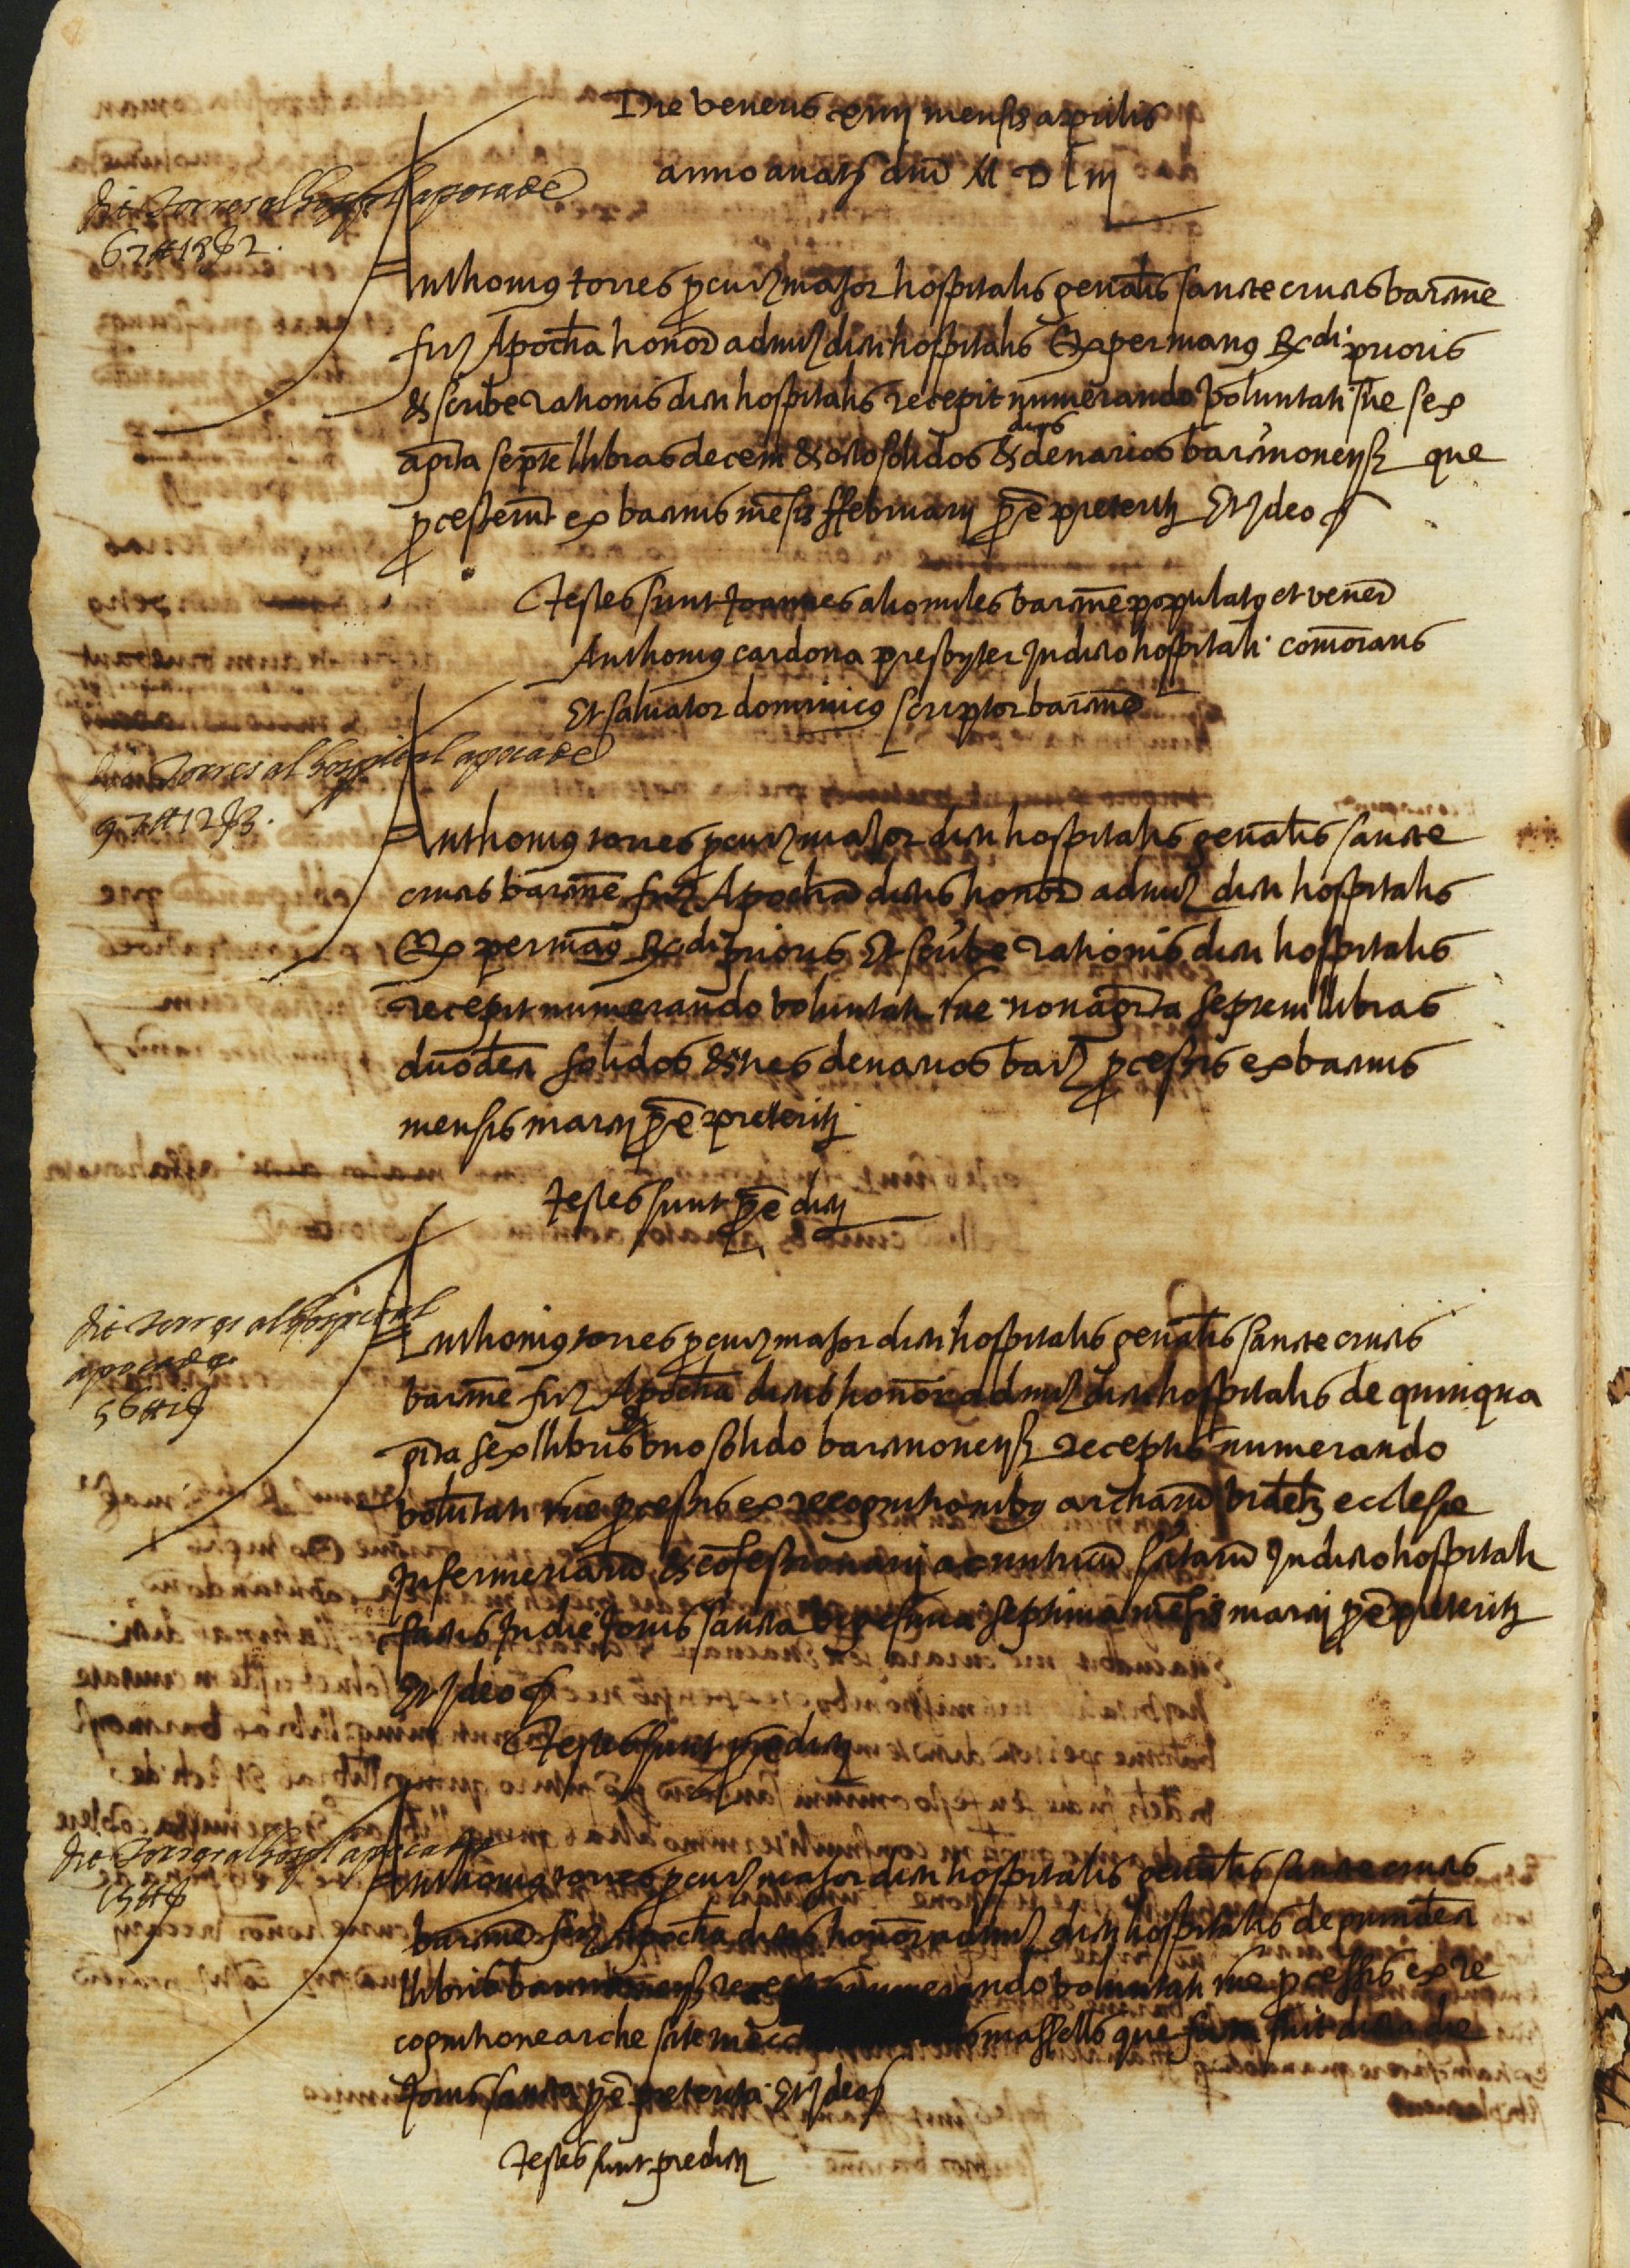 Die veneris xiiij mensis aprilis
anno a natᵉ dnī M D L iij
dit Torres al hospital apoca de
67 ℔ 18 ẜ 2.
Anthonius torres pcur maior hospitalis genalis sancte crucis barmē
fir Apocħa honor admir dicti hospitalis Et per manus Rdi prioris
& scribe rationis dicti hospitalis recepit numerando voluntati sue sex
aginta septē llibras decem & octo solidos & duos denarios barcinonensȝ que
pcesserunt ex bacinis mēsis ffebruarij pē preteriti Et Ideo
Testes sunt Joannes alio miles barmē populatus et vener
Anthonius cardona presbyter In dicto hospitali comorans
Et saluator dominicus scriptor barmē
dit Torres al hospital apoca de
97 ℔ 12 ẜ 3.
Anthonius torres pcur maior dicti hospitalis genalis sancte
crucis barmē fir Apocħa dictis honor admir dicti hospitalis
Et per manus Rdi prioris Et scribe rationis dicti hospitalis
recepit numerando voluntati sue nonaginta septem llibras
duodeci solidos & tres denarios bar pcessis ex bacinis
mensis marcij pē preteriti
testes sunt pē dicti
dit torres al hospital
apoca de
56 ℔ 1 ẜ
Anthonius torres pcur maior dicti hospitalis genalis sancte crucis
barmē fir Apocħa dictis honor admir dicti hospitalis de quinqua
ginta sex llibris & vno solido barcinonensȝ receptis numerando
volūtati sue pcessis ex recognitionibus archarū vidȝ ecclesie
Infermeriarū & cōfessionarij ac nutricū sitarū In dicto hospitali
factis In die Jouis sancta vigesima septima mēsis marcij pē preteriti
Et Ideo
Testes sunt pē dicti
dit Torres al hospital apoca de
15 ℔ ẜ
Anthonius torres pcur maior dicti hospitalis genalis sancte crucis
barmē fir Apocħa dictis honor admir dicti hospitalis de quindeci
llibris barcinonensȝ numerando voluntati sue pcessis ex re
cognitione arche site massells que facta fuit dicta die
Jouis sancta pē preterita Et Ideo
testes sunt predicti